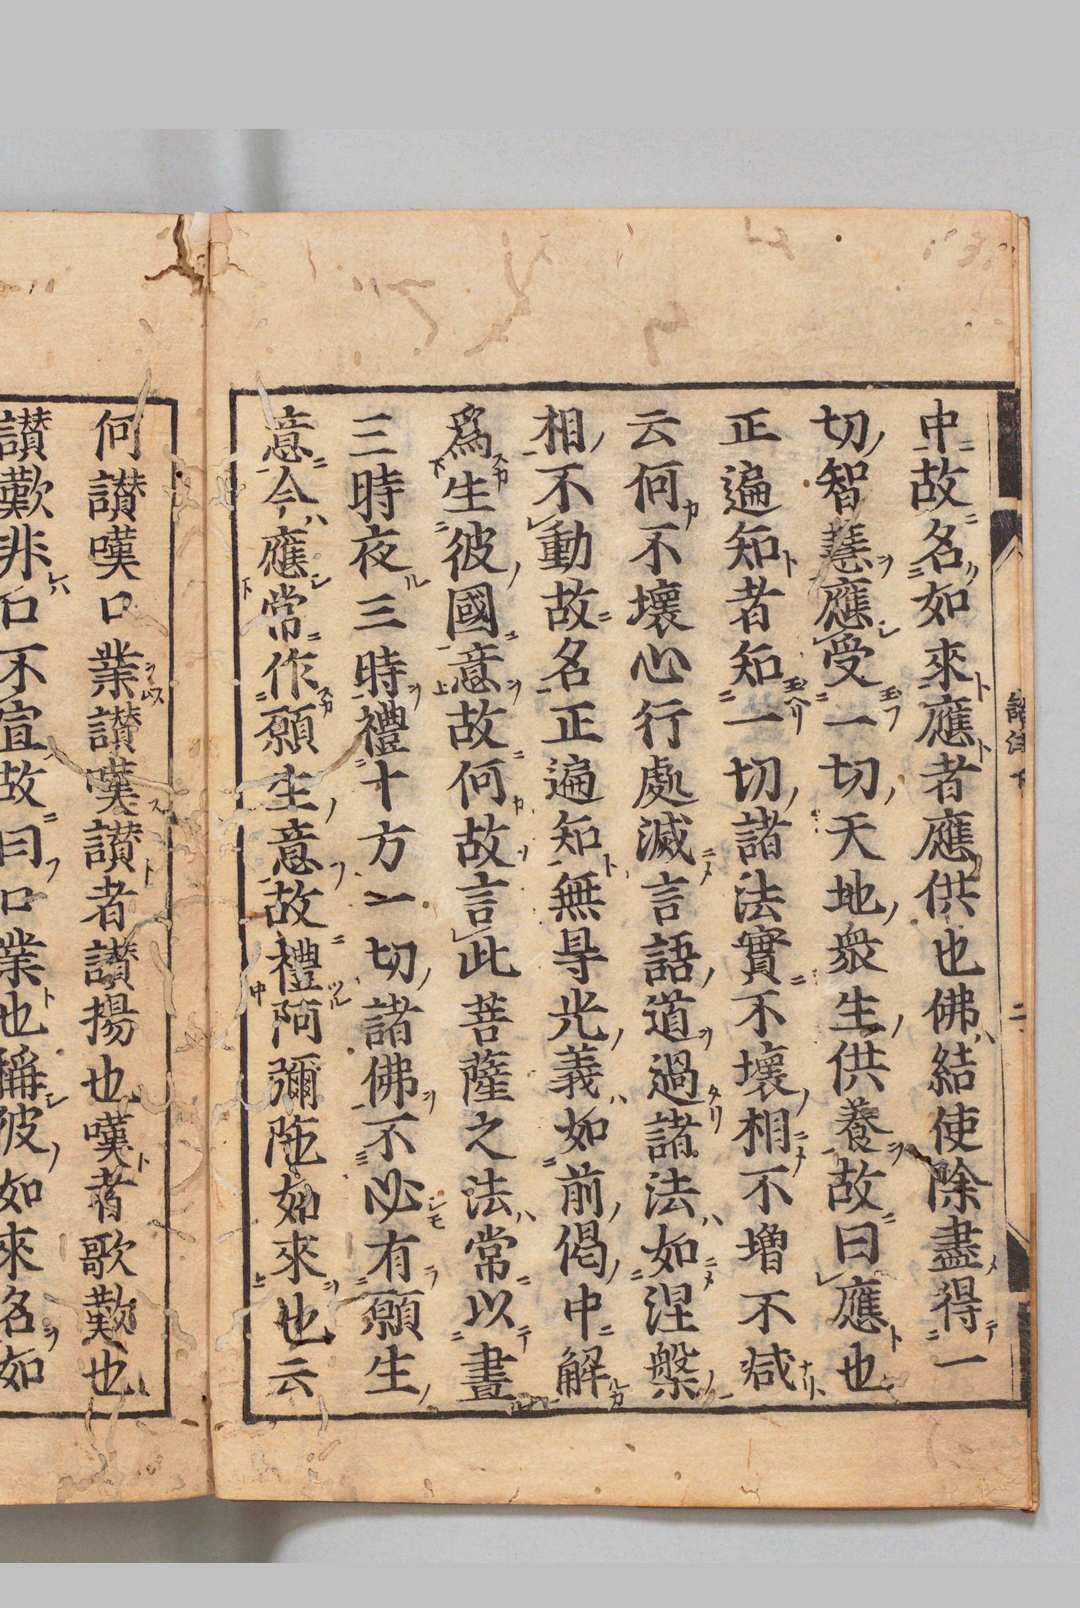 中故名如來應者應供也佛結使除盡得一
切智慧應受一切天地衆生供養故曰應也
正遍知者知一切諸法實不壞相不増不减
云何不壞心行處滅言語道過諸法如涅槃
相不動故名正遍知無㝵光義如前偈中解
爲生彼國意故何故言此菩薩之法常以晝
三時夜三時禮十方一切諸佛不必有願生
意今應常作願生意故禮阿彌陁如來也云
何讃嘆口業讃嘆讃者讃揚也嘆者歌歎也
讃歎非口不宣故曰口業也稱彼如來名如